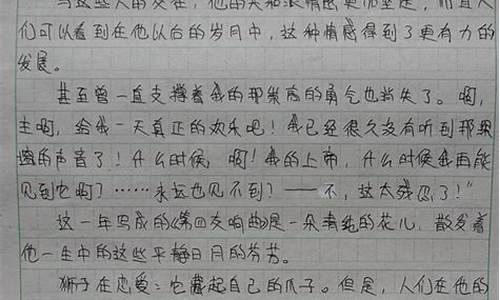 与这些人的交往，他的共和派情感更加坚定，而且人
们可以看到在他以后的岁月中，这种情感得到了更有力的
发展。
甚至曾一直支撑着我的那崇高的勇气也消失了。啊，
主啊，给我一天真正的欢乐吧！我已经很久没有听到那欢
的声音了！什么时候，啊！我的上帝，什么时候我再能
见到它啊？……永远也见不到？——不，这太残忍了！”
这一年写成的《第四交响曲》是一朵清纯的花儿，散发着
他一生中的这些平静日月的芬芳。
狮子在恋爱：它藏起自己的爪子。但是，人们在他的